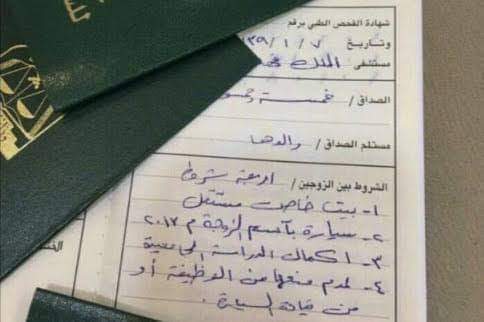 شهادة الفحص الطبي برقم
وتاريخ ٣٩/١/٧
مستشفى الملك
الصداق / خمسة
مستلم الصداق / والدها
الشروط بين الزوجين / اربعة شروط
١- بيت خاص مستقل
٢- سيارة بأسم الزوجة م ٢٠١٣
٣- اكمال الدراسة الجامعية
٤- عدم منعها من الوظيفة أو
من قيادة السيارة .